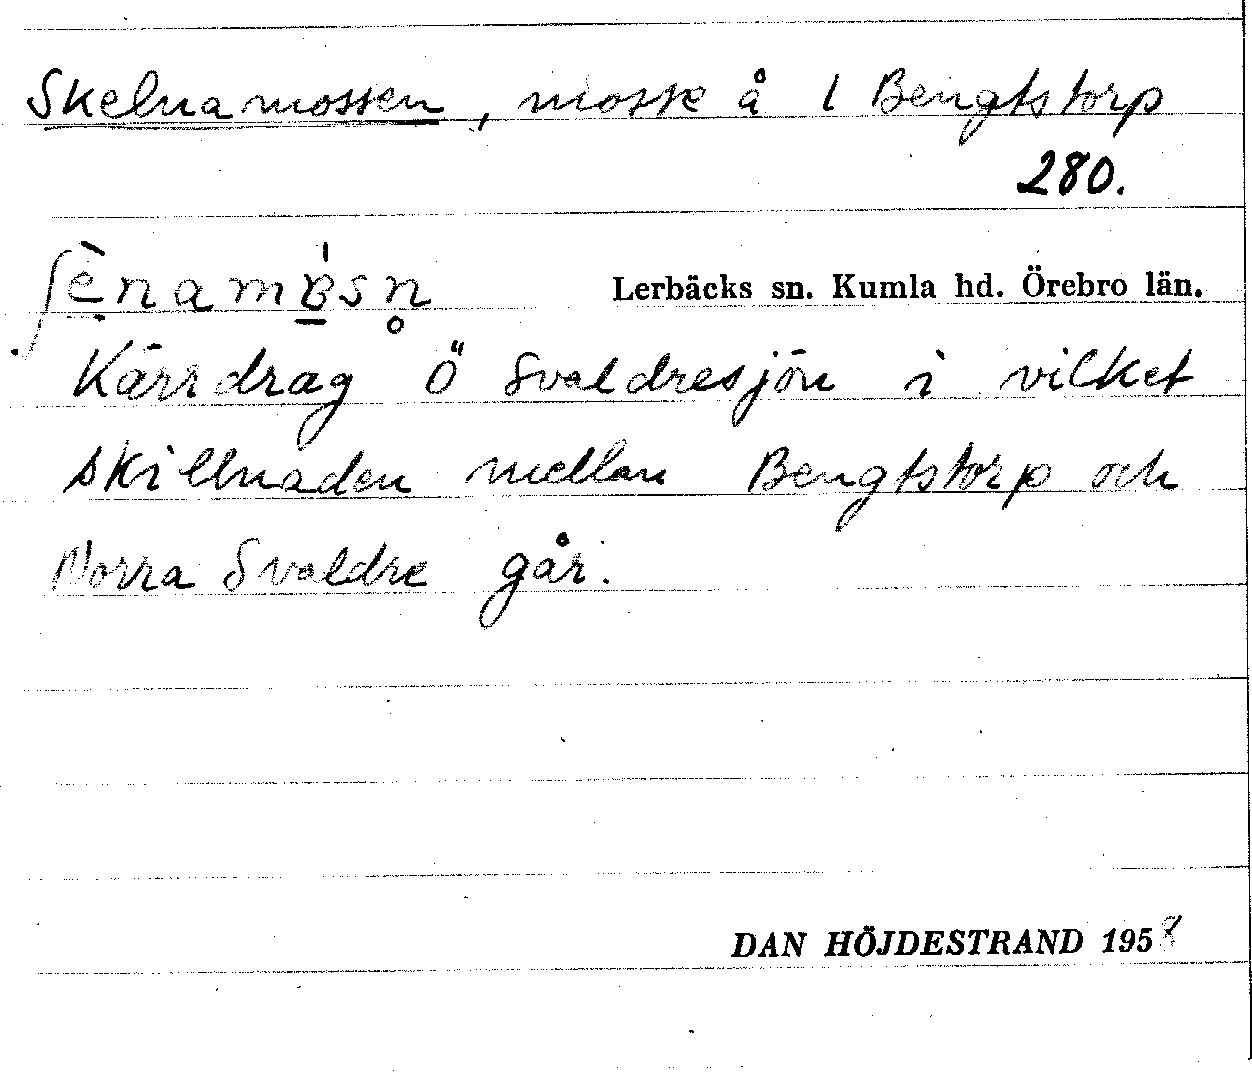 Skelnamossen, mosse å 1 Bengtstorp
280.
Lerbäcks sn. Kumla hd. Örebro län.
Kärrdrag Ö Svaldresjön i vilket
skillnaden mellan Bengtstorp och
Norra Svaldre går.
DAN HÖJDESTRAND 1958